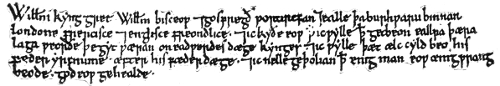 Willm kyng gret Willm bisceop ⁊ gosfregð portirefan ⁊ ealle þa burhƿaru binnan
londone frencisce ⁊ englisce freondlice · ⁊ ic kyðe eoƿ ꝥ ic ƿylle ꝥ get beon eallra þæra
laga ƿeorðe þe gyt ƿæran on eadƿerdes dæge kynges · ⁊ ic ƿylle ꝥ ælc cyld beo his
fæder yrfnume · æfter his fæder dæge · ⁊ ic nelle geþolian ꝥ ænig man eoƿ ænig ƿrang
beode · god eoƿ gehealde ·